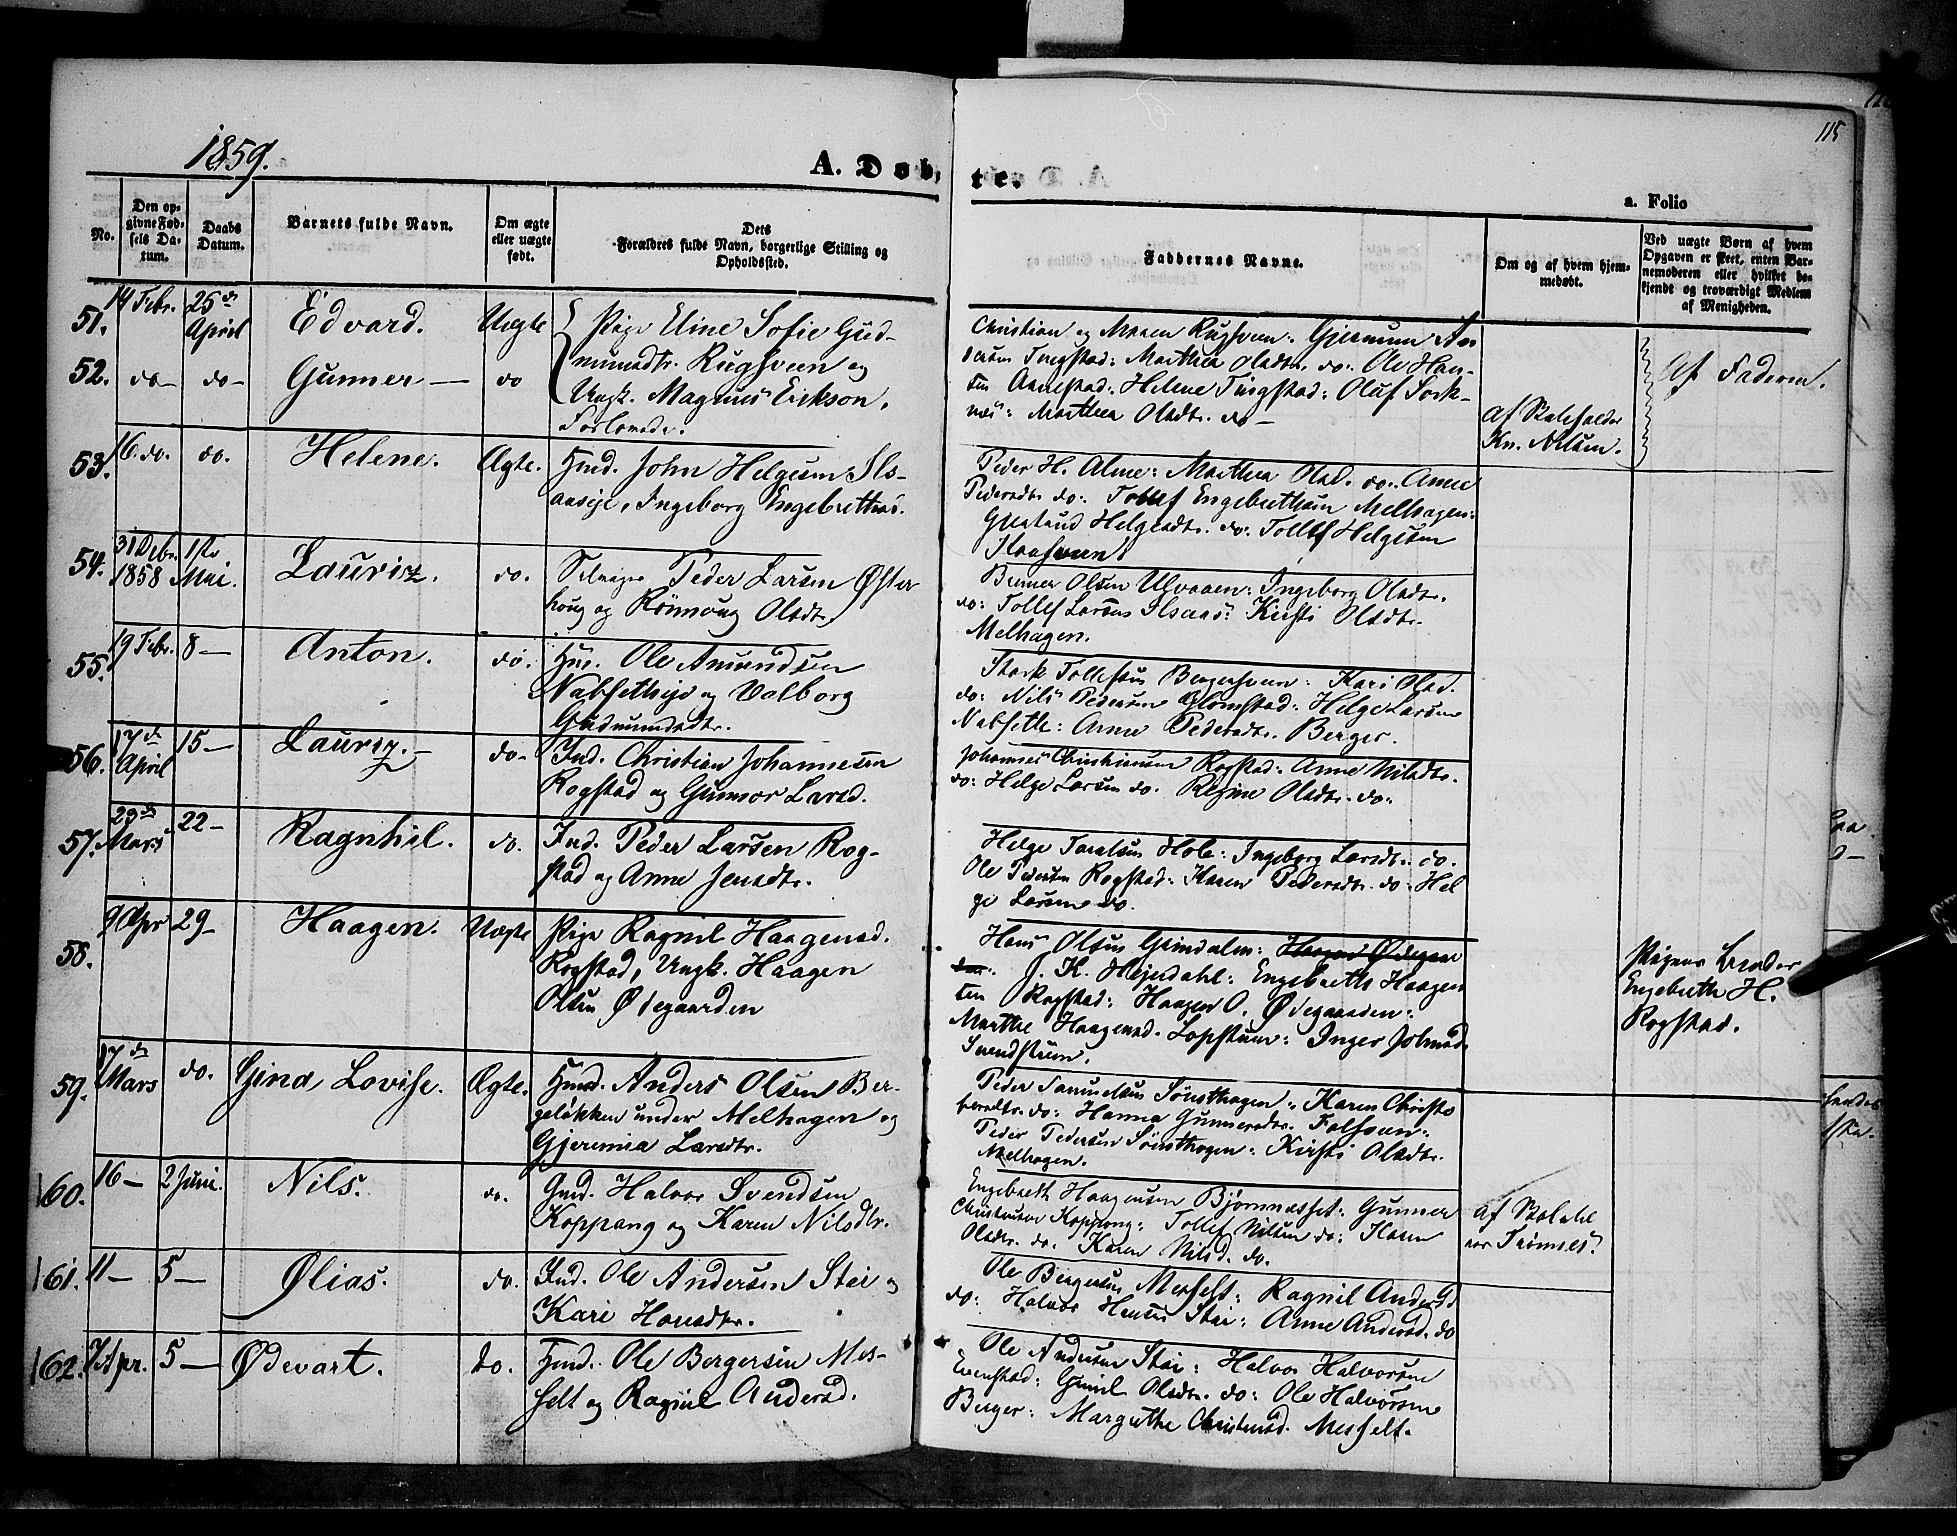 115
1859.
A. Døb-
te.
a. Folio
No.
Den op-
givne Fød-
sels Da-
tum.
Daabs
Datum.
Barnets fulde Navn.
Om ægte
eller uægte
født.
Dets
Forældres fulde Navn, borgerlige Stilling og
Opholdssted.
Faddernes Navne.
Om og af hvem hjem-
medøbt.
Ved uægte Børn af hvem
Opgaven er skeet, enten Bar-
nemoderen eller hvilket be-
kjendt og troværdigt Medlem
af Menigheden.
51.
14 Febr.
25de
April
Edvard.
Uægte
Pige Eline Sofie Gud-
Christian og Maren Rugsveen:
Tingstad: Marthea Olsdtr. do: Ole Han-
52.
do-
do-
Gunner-
do
mundsdtr. Rugsveen og
Ungk. Magnus Erikson,
sen Aanestad: Helene Tingstad: Oluf Sork-
næs: Marthea Olsdtr. do-
Af Skoleholder
Kn. Nilsen.
Af Faderen.
53.
16. do.
do.
Helene.
Ægte.
Hmd. John Helgesen Ils-
aasije, Ingeborg Engebrethsd.
Peder H. Alme: Marthea Olsd. do. Anne
Pedersdtr do: Tollef Engebrethsen Melhagen:
Helgesdtr. do. Tollef Helgesen
54.
31 Debr.
1858
1ste
Mai.
Lauriz.
do.
Peder Larsen Øster
houg og Rönnoug Olsdtr.
Olsen Ulvaaen: Ingeborg Olsdtr.
do: Tollef Larsen Ilsaas: Kirsti Olsdtr.
Melhagen.
55.
19 Febr.
8-
Anton.
do.
Hus. Ole Amundsen
og Valborg
Gudmundsdtr.
Tollefsen Bergersveen: Kari Olsd.
do: Nils Pedersen Glomstad: Helge Larsen
Nabsetle: Anne Pedersdtr. Berger.
56.
17de
April
15-
Lauriz.-
do-
Ind. Christian Johannesen
Rogstad og Gunnor Larsd.
Johannes Christiansen Rogstad: Anne Nilsdtr.
do: Helge Larsen do. Regine Olsdtr. do:
57.
23de
Mars
22-
Ragnhil.
do.
Ind. Peder Larsen Rog-
stad og Anne Jensdtr.
Helge Taralsen Hole: Ingeborg Larsdtr. do.
Ole Pedersen Rogstad: Karen Pedersdtr. do: Hel
ge Larsen do.
58.
9 Apr
29-
Haagen.
Uægte
Pige Ragnil Haagensd.
Rogstad, Ungk. Haagen
Olsen Ødegaarden
Hans Olsen Grindalen: Haagen Ødegaar
den: J. K. Hejerdahl: Engebreth Haagen
sen Rogstad: Haagen O. Ødegaarden:
Marthe Haagensd. Lopstuen: Inger Johnsd.
Svendstuen.
Pigens Broder
Engebreth H.
Rogstad.
59.
17de
Mars
do.
Gina Lovise.
Ægte.
Hmd. Anders Olsen Ber-
geløkken under Melhagen og
Gjermea Larsdtr.
Peder Samuelsen Sønsthagen: Karen Christo
fersdtr. do: Hanna Gunnersdtr.
Peder Pedersen Sønsthagen: Kirsti Olsdtr.
Melhagen.
160.
16-
2 Juni.
Nils.
do.
Gmd. Halvor Svendsen
Koppang og Karen Nilsdtr.
Engebreth Haagensen Bjørnnæsset: Gunner
Christensen Koppang: Tollef Nilsen do: Karen
Olsdtr. do. Karen Nilsd. do.
Af Skolehl
der
161.
11-
5-
Ølias.
do.
Ind. Ole Andersen Stai og
Kari Hansdtr.
Ole Bergersen Messelt: Ragnil Andersd
do: Halvor Hansen Stai: Anne Andersd. do
162.
7 Apr.
5-
Ødevart.
do.
Hmd. Ole Bergersen Mes-
selt og Ragnil Andersd.
Ole Andersen Stai: Halvor Halvorsen
Evenstad: Olsdtr. do: Ole Halvorsen
Berger: Margrethe Christensd. Messelt.